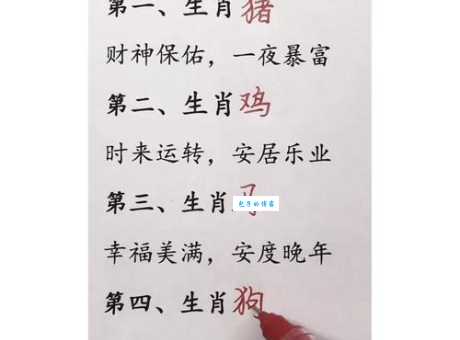 第一、生肖猪
财神保佑，一夜暴富
第二、生肖鸡
时来运转，安居乐业
第三、生肖
幸福美满，安度晚年
第四、生肖狗